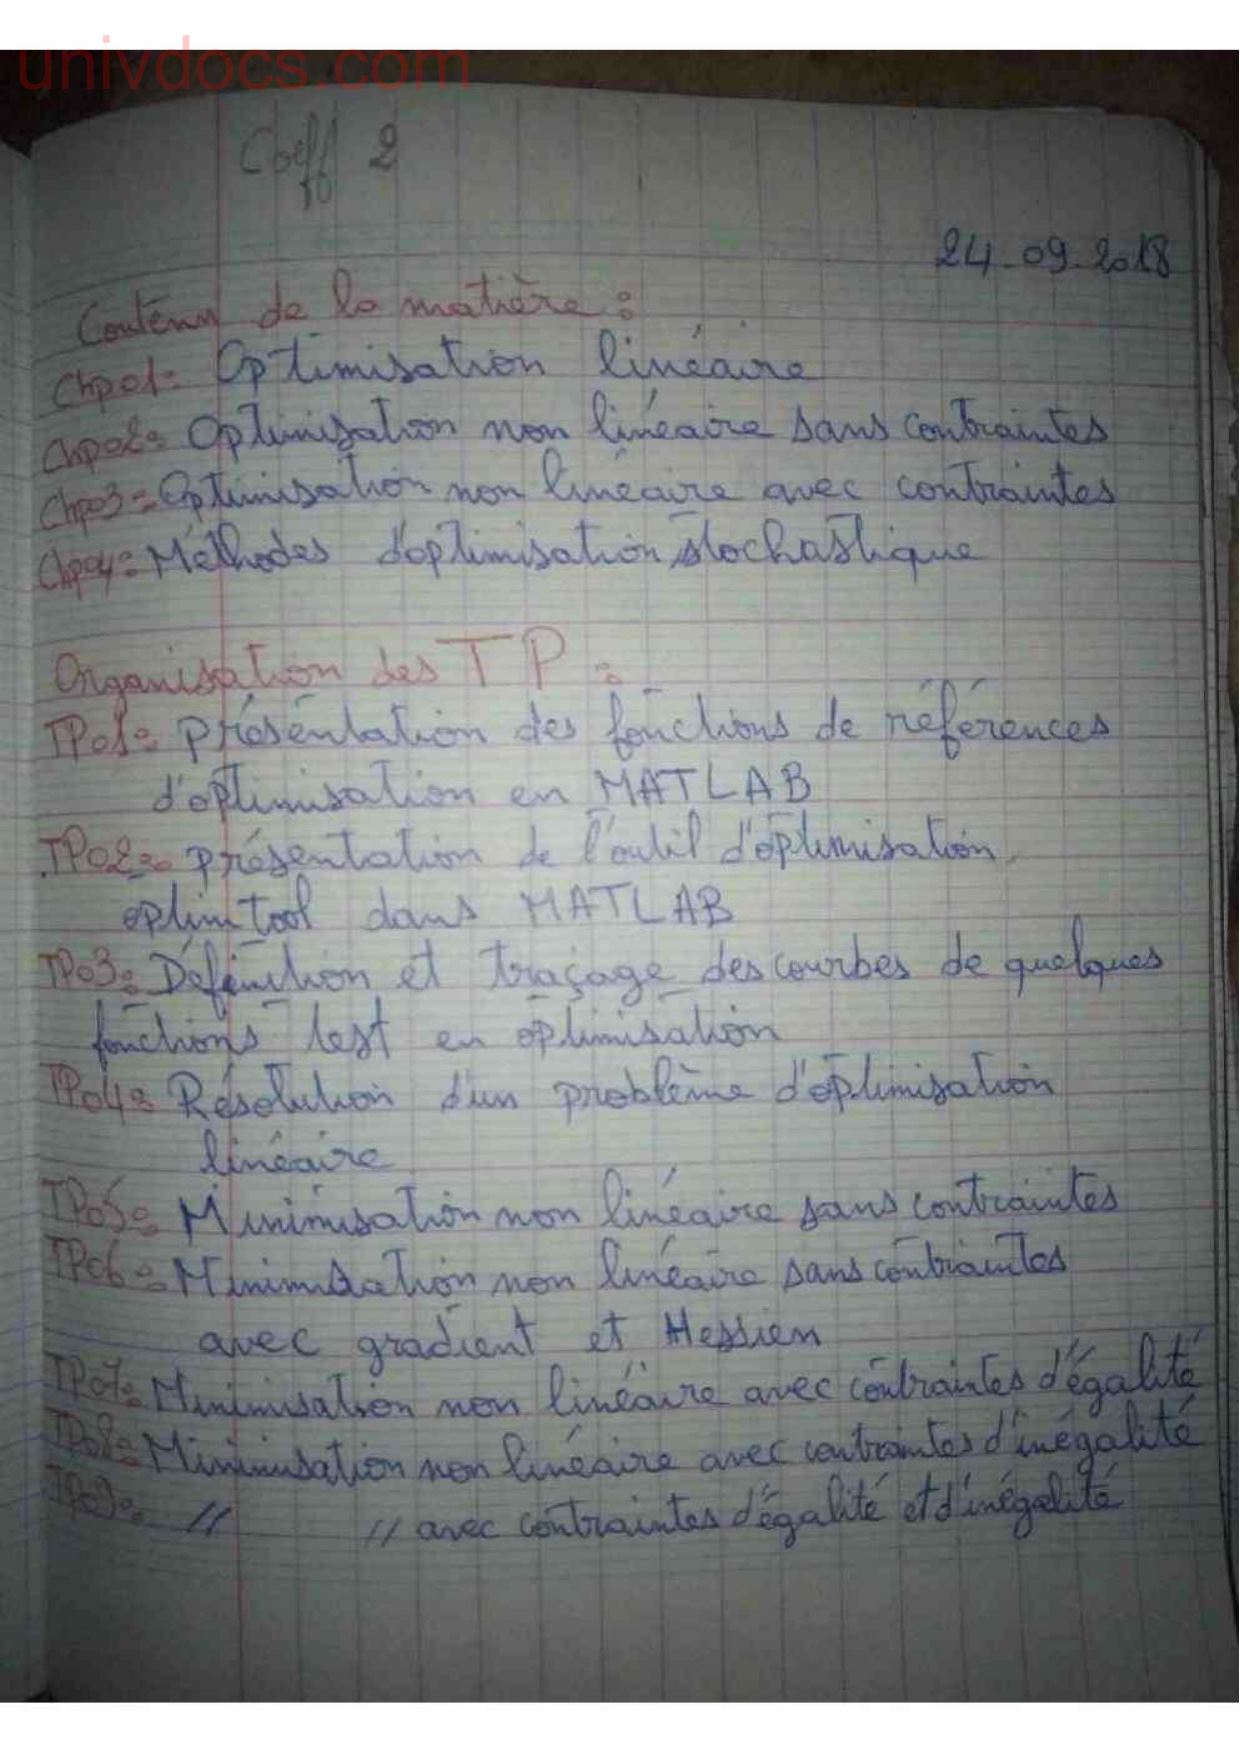 univdocs.com
Coeff 2
24-09-2018
Contenu de la matière :
Chp01: Optimisation linéaire
Chp02: Optimisation non linéaire sans contraintes
Chp03: Optimisation non linéaire avec contraintes
Chp04: Méthodes d'optimisation stochastique
Organisation des TP :
TP01: présentation des fonctions de références
d'optimisation en MATLAB
TP02: présentation de l'outil d'optimisation
optimtool dans MATLAB
TP03: Définition et traçage des courbes de quelques
fonctions test en optimisation
TP04: Résolution d'un problème d'optimisation
linéaire
TP05: Minimisation non linéaire sans contraintes
TP06: Minimisation non linéaire sans contraintes
avec gradient et Hessien
TP07: Minimisation non linéaire avec contraintes d'égalité
TP08: Minimisation non linéaire avec contraintes d'inégalité
TP09: // // avec contraintes d'égalité et d'inégalité